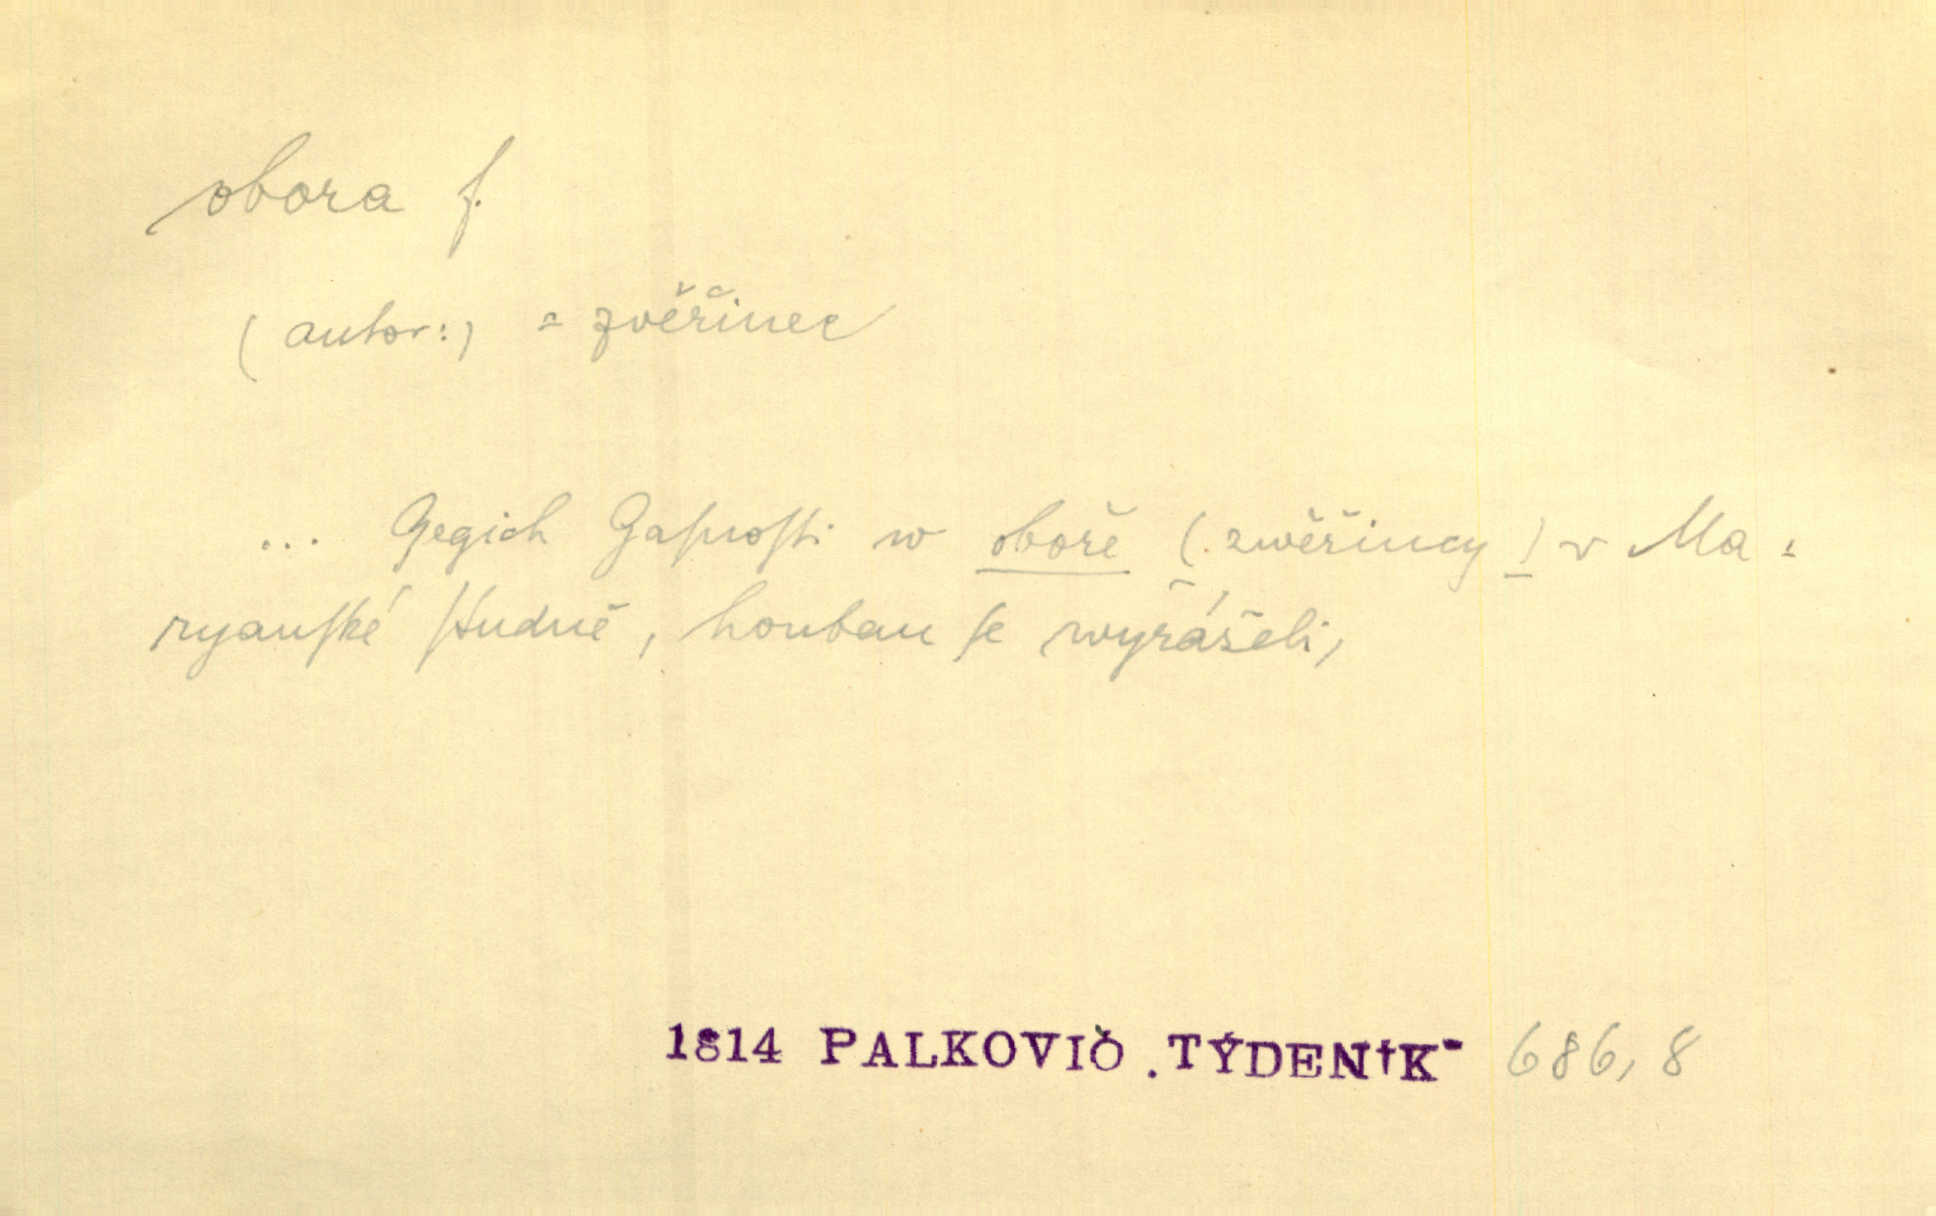 obora f.
(autor:) = zvěřinec
... Gegich Gaſnoſti w oboře (zwěřincy) v Ma=
ryanſké ſtudně, honbau ſe wyráželi,
1814 PALKOVIČ „TÝDENÍK“ 686,8